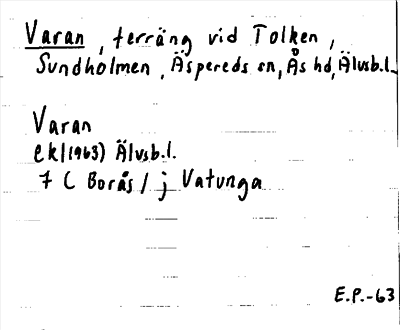 Varan, terräng vid Tolken,
Sundholmen, Äspereds sn, Ås hd, Älvsb.l.
Varan
ek/(1963) Älvsb.l.
7 C Borås / j Vatunga
E.P.-63